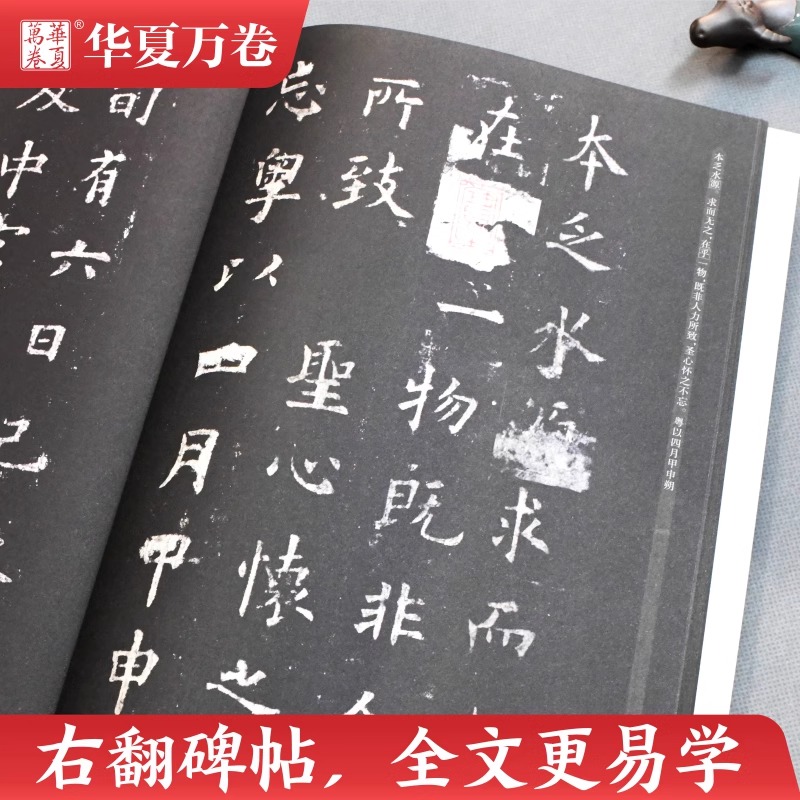 華夏萬卷®
华夏万卷
本乏水源求而
在一物既非人
所致聖心懷之
忘粵以四月甲申
旬有六日
中
记
本乏水源。求而无之,在乎一物,既非人力所致,圣心怀之不忘。粤以四月甲申朔
右翻碑帖,全文更易学